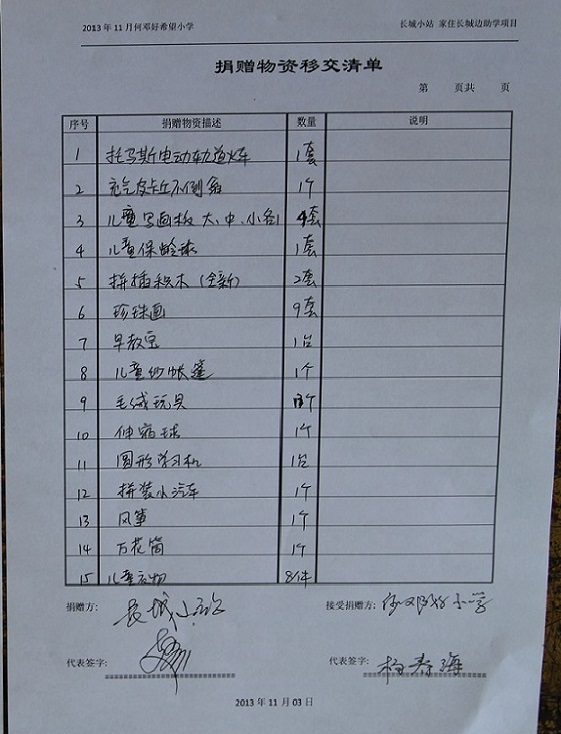 2013年11月何邓好希望小学 长城小站 家住长城边助学项目
捐赠物资移交清单
第 页共 页
序号 捐赠物资描述 数量 说明
1 托马斯电动轨道火车 1套
2 充气皮卡丘不倒翁 1个
3 儿童写画板 大、中、小各1 4套
4 儿童保龄球 1套
5 拼插积木(全新) 2套
6 珍珠画 9套
7 早教宝 1台
8 儿童纱帐篷 1个
9 毛绒玩具 个
10 伸缩球 1个
11 圆形学习机 1台
12 拼装小汽车 1个
13 风筝 1个
14 万花筒 1个
15 儿童衣物 8件
捐赠方: 长城小站 接受捐赠方: 何邓好小学
代表签字: 代表签字: 杨春海
2013年11月03日